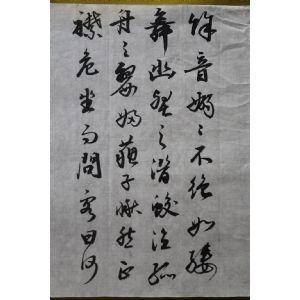 餘音嫋〻不絕如縷
舞幽壑之潛蛟泣孤
舟之嫠婦蘇子愀然正
襟危坐而問客曰何